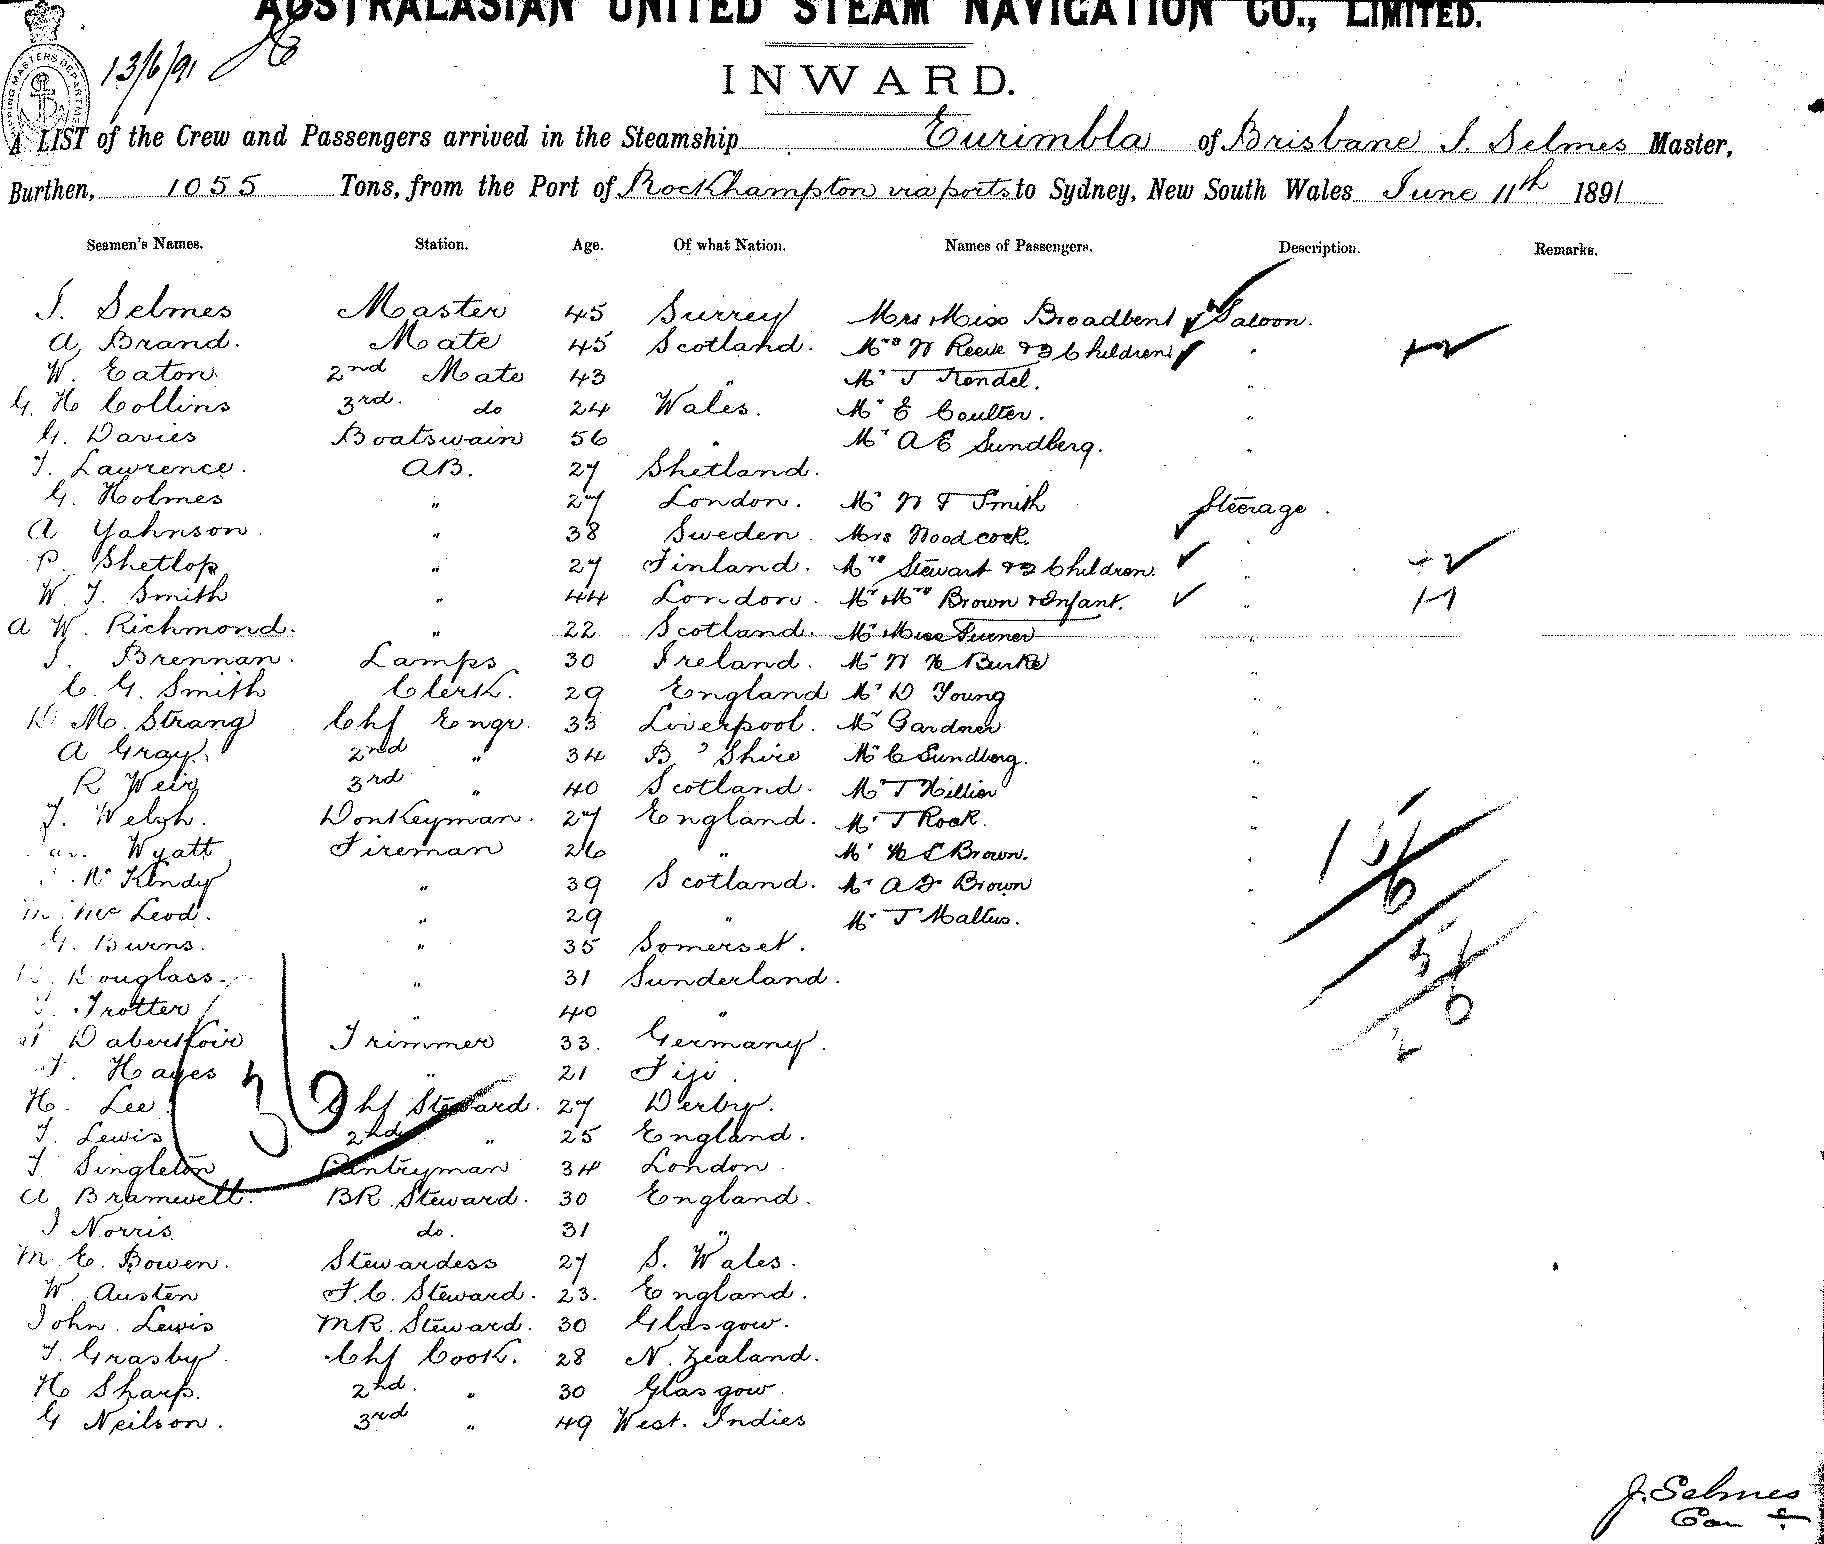 AUSTRALASIAN UNITED STEAM NAVIGATION CO., LIMITED.
13/6/91
INWARD.
A LIST of the Crew and Passengers arrived in the Steamship Eurimbla of Brisbane J. Selmes Master,
Burthen, 1055 Tons, from the Port of Rockhampton via ports to Sydney, New South Wales June 11th 1891
Seamen's Names. Station. Age. Of what Nation. Names of Passengers. Description. Remarks.
J. Selmes Master 45 Surrey Mrs Miss Broadbent Saloon.
A Brand. Mate 45 Scotland. Mrs W Reeve & 3 Children "
W. Eaton 2nd Mate 43 " Mr T Kendel. "
G. H Collins 3rd. do 24 Wales. Mr E Coulter. "
G. Davies Boatswain 56 " Mr A E Sundberg. "
J. Lawrence. AB. 27 Shetland.
G. Holmes " 27 London. Mr W T Smith Steerage.
A Yahnson. " 38 Sweden. Mrs Woodcock. "
P. Shetlop " 27 Finland. Mrs Stewart & 3 Children. "
W. J. Smith " 44 London. Mr Mrs Brown & Infant. "
A W. Richmond. " 22 Scotland. Mr Miss Turner "
J. Brennan. Lamps 30 Ireland. Mr W H Burke "
C. G. Smith Clerk. 29 England Mr D Young "
D M. Strang Chf Engr. 33 Liverpool. Mr Gardner "
A Gray. 2nd " 34 B'Shire Mr C Sundberg. "
R Weir 3rd " 40 Scotland. Mr T Hillier "
J. Welsh. Donkeyman. 27 England. Mr T Rock. "
Wyatt Fireman 26 " Mr H S Brown. "
Mc Kendy " 39 Scotland. Mr A Brown "
M. Mc Leod. " 29 " Mr T Maltus. "
G. Burns. " 35 Somerset.
Douglass. " 31 Sunderland.
Trotter " 40 "
Daberkoir Trimmer 33. Germany.
Hayes " 21 Fiji.
H. Lee Chf Steward. 27 Derby.
J. Lewis 2nd " 25 England.
J Singleton Pantryman 34 London
A Bramwell. BR. Steward. 30 England.
J Norris do. 31 "
M. E. Bowen. Stewardess 27 S. Wales.
W. Austen F.C. Steward. 23. England.
John. Lewis MR. Steward. 30 Glasgow.
J. Grasby. Chf Cook. 28 N. Zealand.
H Sharp. 2nd. " 30 Glasgow.
G Neilson. 3rd " 49 West. Indies
36
J. Selmes